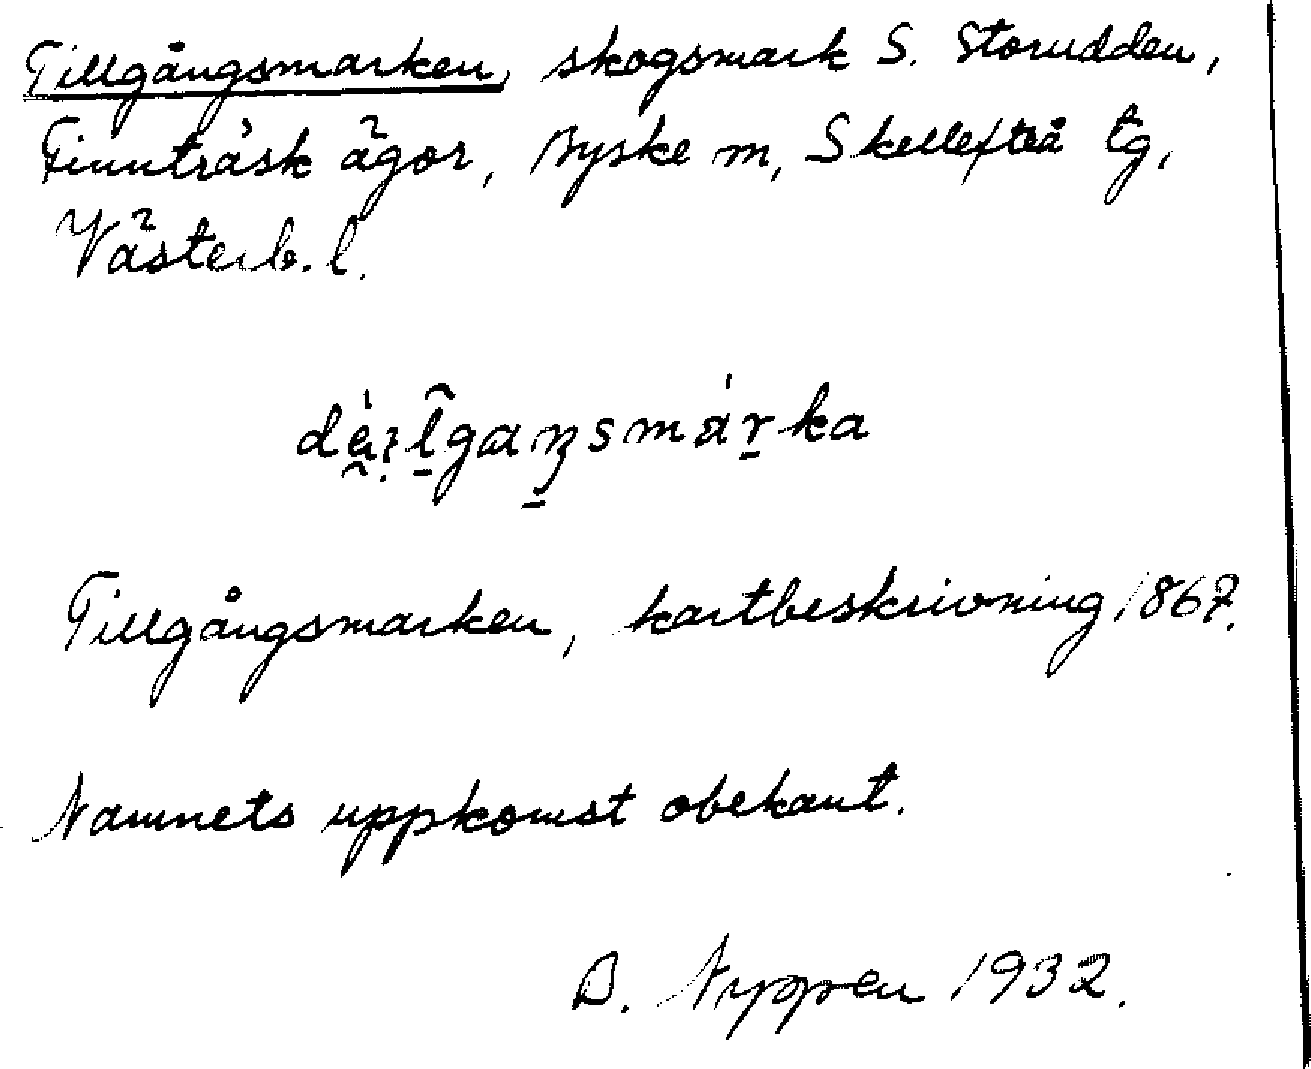 Tillgångsmarken, skogsmark S. Storudden,
Finnträsk ägor, Byske sn, Skellefteå tg,
Västerb. l.
Tillgångsmarken, kartbeskrivning 1867.
Namnets uppkomst obekant.
B. Nyppen 1932.